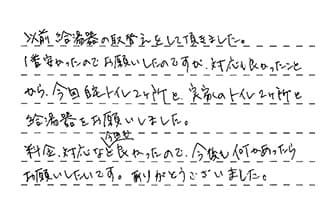 以前給湯器の取替えをして頂きました。
1番安かったのでお願いしたのですが、対応も良かったこと
から、今回自宅トイレ2ヶ所と、実家のトイレ2ヶ所と
給湯器をお願いしました。
今回も
料金、対応など良かったので、今後も何かあったら
お願いしたいです。ありがとうございました。